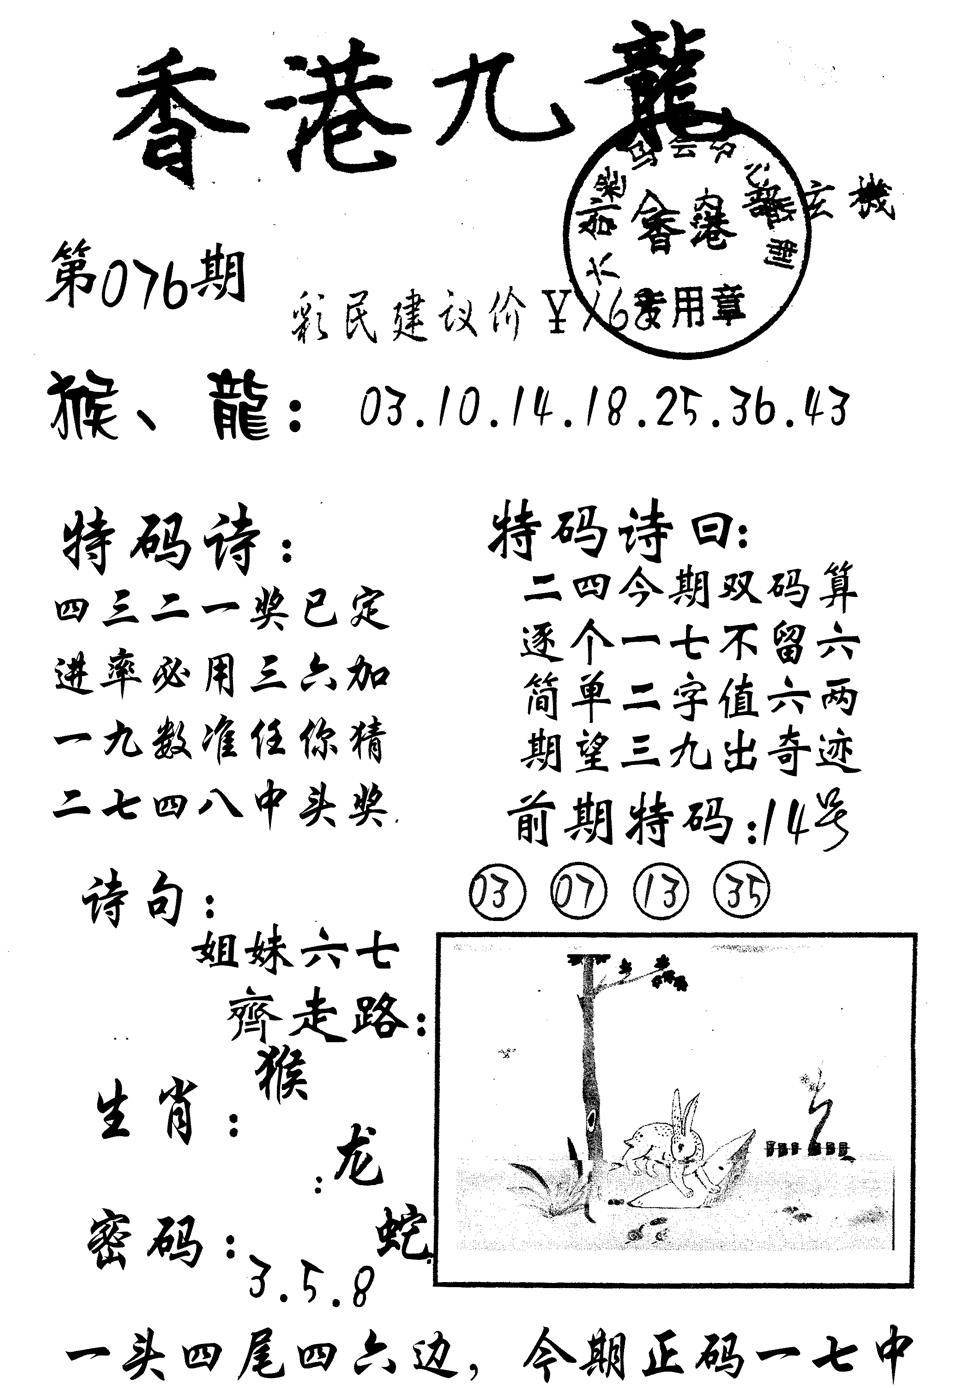 香港九龍
玄機
香港
专用章
第076期
彩民建议价¥168
猴、龍：03.10.14.18.25.36.43
特码诗：
四三二一奖已定
进率必用三六加
一九数准任你猜
二七四八中头奖.
特码诗曰：
二四今期双码算
逐个一七不留六
简单二字值六两
期望三九出奇迹
前期特码：14号
03 07 13 35
诗句：
姐妹六七
齊走路：
生肖：
猴
龙
蛇
密码：
3.5.8
一头四尾四六边，今期正码一七中